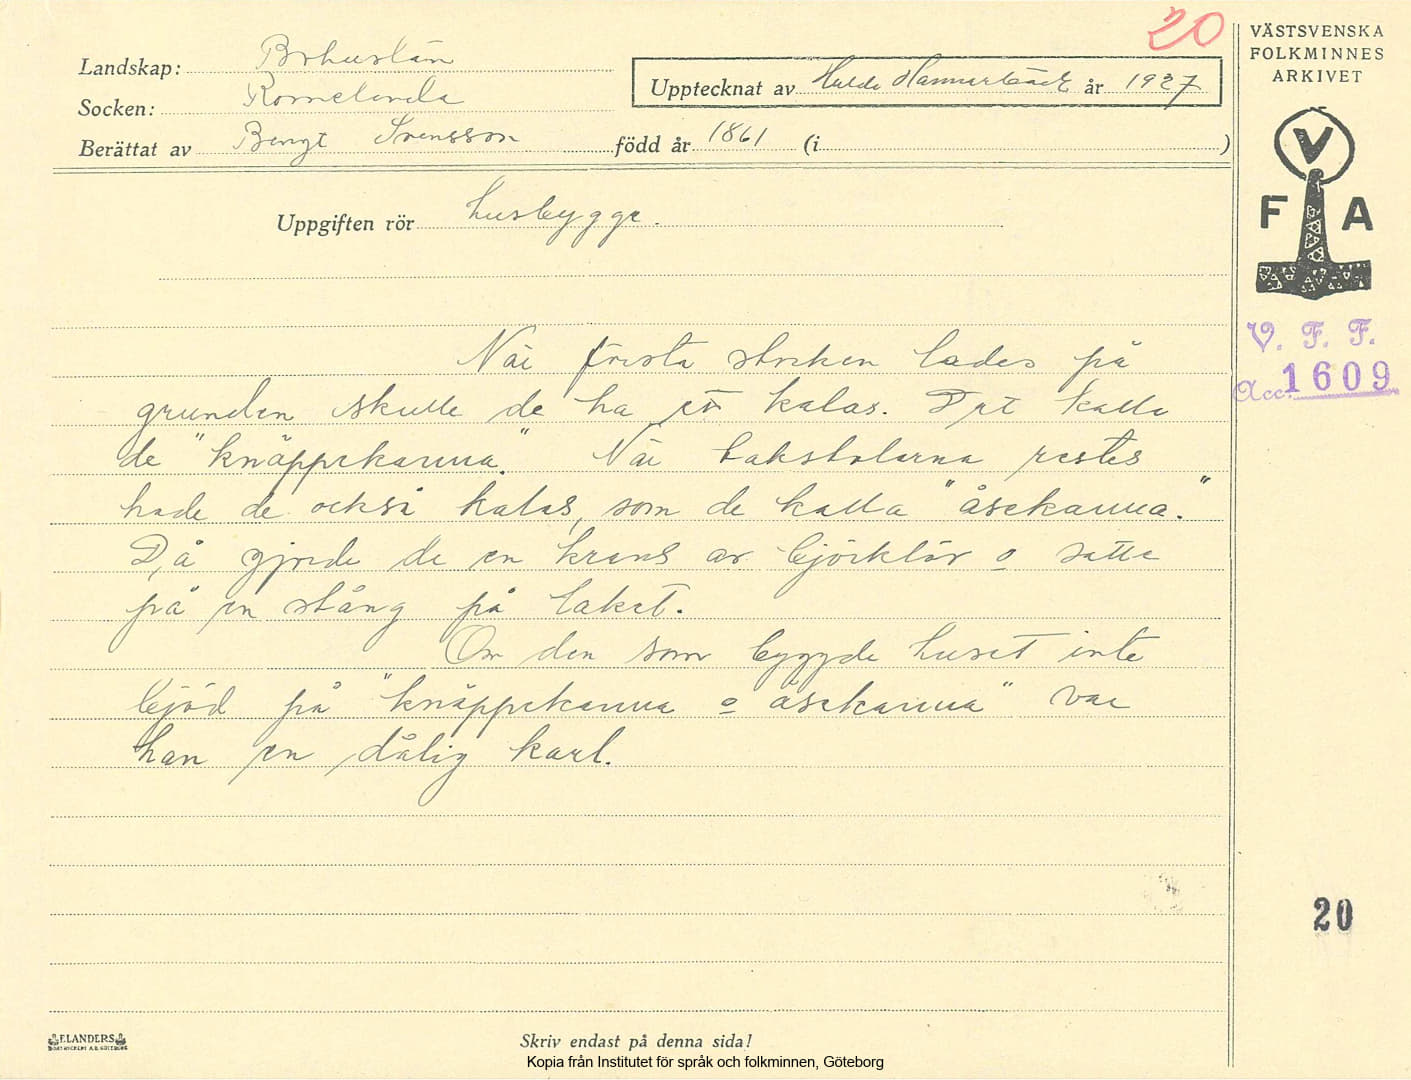 20
VÄSTSVENSKA
FOLKMINNES
ARKIVET
Landskap: Bohuslän
Socken: Romelanda
Upptecknat av Hulda Hammarbäck år 1927
Berättat av Bengt Svensson född år 1861 (i )
V
F A
Uppgiften rör husbygge.
V. F. F.
Acc. 1609
När första stocken lades på
grunden skulle de ha ett kalas. Det kalla
de "knäppekanna". När takstolarna restes
hade de också kalas, som de kalla "åsekanna."
Då gjorde de en krans av björklöv o satte
på en stång på taket.
Om den som byggde huset inte
bjöd på "knäppekanna o åsekanna" var
han en dålig karl.
20
ELANDERS
BOKTRYCKERI A.B. GÖTEBORG
Skriv endast på denna sida!
Kopia från Institutet för språk och folkminnen, Göteborg